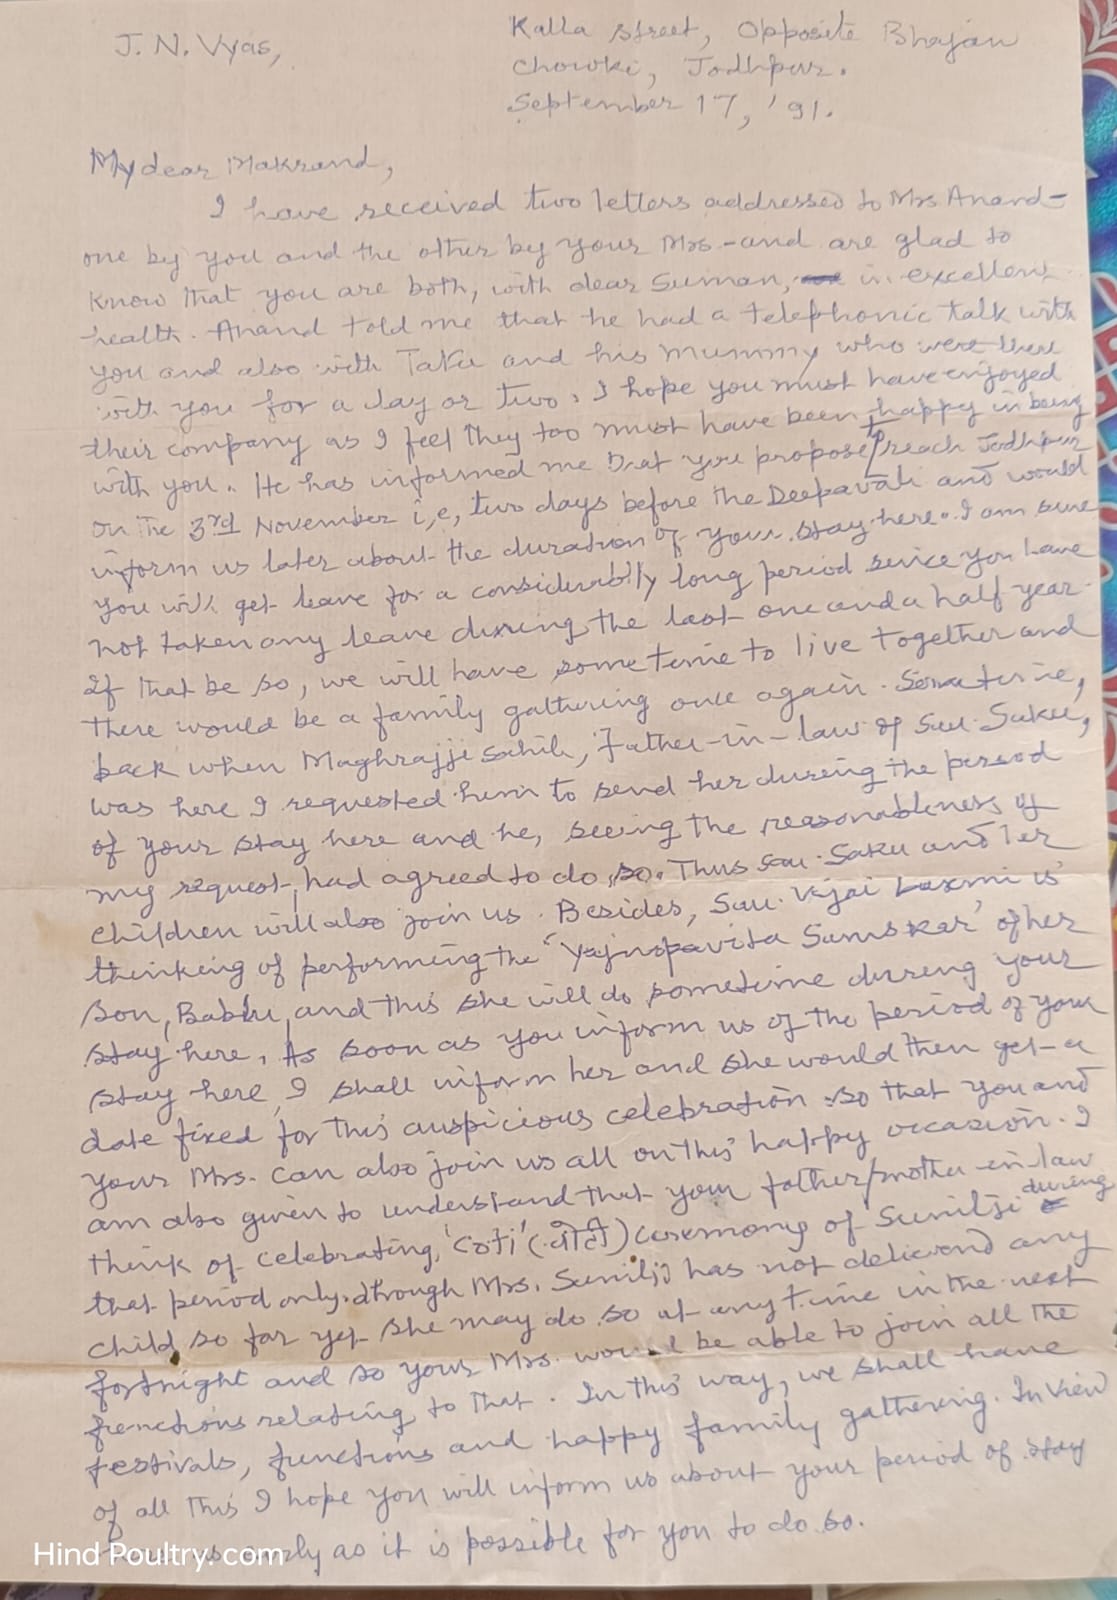 J. N. Vyas,
Kalla Street, Opposite Bhajan
Chowki, Jodhpur.
September 17, '91.
My dear Makrand,
I have received two letters addressed to Mrs Anand-
one by you and the other by your Mrs-and are glad to
know that you are both, with dear Suman, in excellent
health. Anand told me that he had a telephonic talk with
you and also with Taku and his mummy who were there
with you for a day or two. I hope you must have enjoyed
their company as I feel they too must have been happy in being
with you. He has informed me that you propose to reach Jodhpur
on the 3rd November i,e, two days before the Deepavali and would
inform us later about the duration of your stay here. I am sure
you will get leave for a considerably long period since you have
not taken any leave during the last one and a half year.
If that be so, we will have some time to live together and
there would be a family gathering once again. Some time,
back when Maghrajji Sahib, Father-in-law of Sau. Saku,
was here I requested him to send her during the period
of your stay here and he, seeing the reasonableness of
my request, had agreed to do so. Thus Sau. Saku and her
children will also join us. Besides, Sau. Vijai Laxmi is
thinking of performing the 'Yajnopavita Sanskar' of her
son, Bablu, and this she will do sometime during your
stay here. As soon as you inform us of the period of your
stay here, I shall inform her and she would then get a
date fixed for this auspicious celebration so that you and
your Mrs. can also join us all on this happy occasion. I
am also given to understand that your father/mother-in-law
think of celebrating ceremony of Sunilji during
that period only. Although Mrs. Sunilji has not delivered any
child so far yet she may do so at any time in the next
fortnight and so your Mrs. would be able to join all the
functions relating to that. In this way, we shall have
festivals, functions and happy family gathering. In view
of all this I hope you will inform us about your period of stay
as early as it is possible for you to do so.
Hind Poultry. com